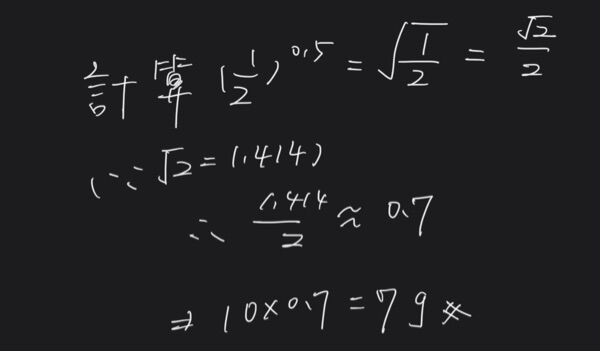 計算 (1/2)^0.5 = √(1/2) = √2/2
(∵ √2 = 1.414)
∴ 1.414/2 ≈ 0.7
⇒ 10×0.7 = 7g ※